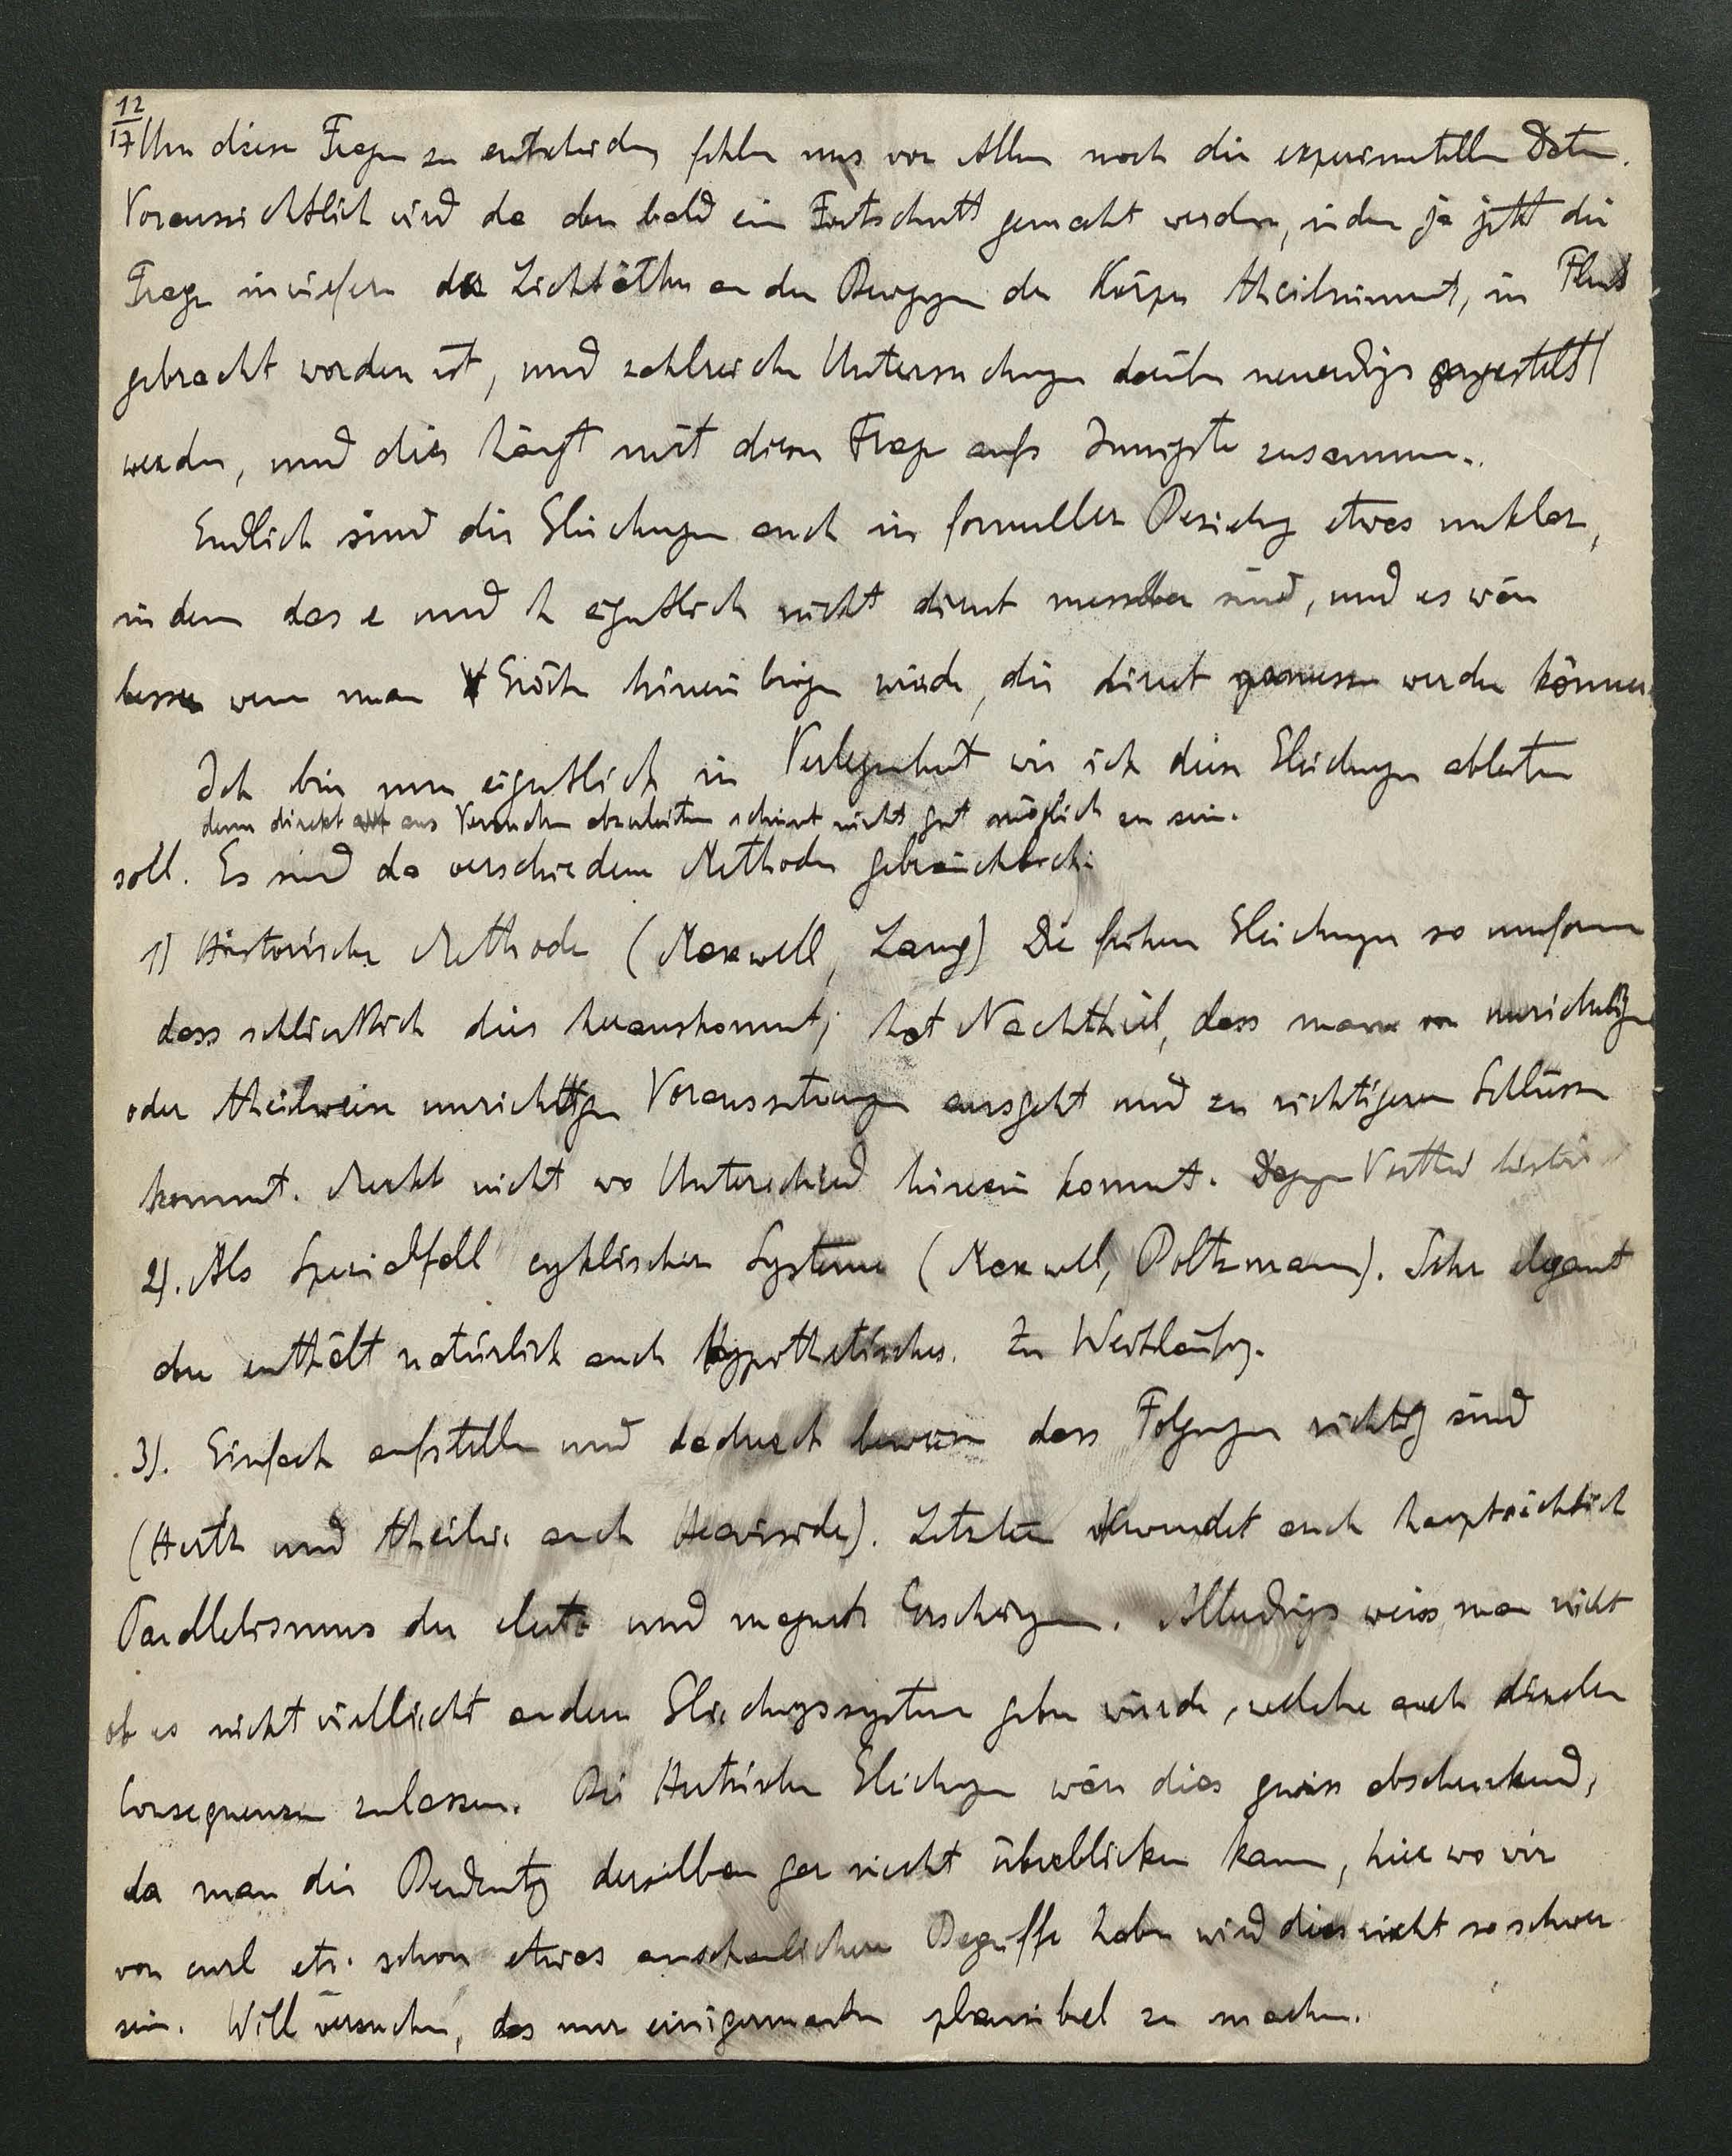 12/17
Um diese Fragen zu entscheiden fehlen uns vor Allem noch die experimentellen Daten.
Voraussichtlich wird da aber bald ein Fortschritt gemacht werden, indem ja jetzt die
Frage inwiefern der Lichtäther an den Bewegungen der Körper theilnimmt, in Fluss
gebracht worden ist, und zahlreiche Untersuchungen darüber neuerdings angestellt
werden, und dies hängt mit diesen Fragen aufs Innigste zusammen.
Endlich sind die Gleichungen auch in formeller Beziehung etwas unklar,
indem das e und h eigentlich nicht direct messbar sind, und es wäre
besser wenn man Größen hineinbringen würde, die direct gemessen werden können.
Ich bin nun eigentlich in Verlegenheit wie ich diese Gleichungen ableiten
denn direkt aus Versuchen abzuleiten scheint nicht gut möglich zu sein.
soll. Es sind da verschiedene Methoden gebräuchlich:
1) Historische Methode (Maxwell, Lang) Die frühern Gleichungen so umformen
dass schließlich dies herauskommt; hat Nachtheil, dass man von unrichtigen
oder theilweise unrichtigen Voraussetzungen ausgeht und zu richtigeren Schlüssen
kommt. Merkt nicht wo Unterschied hinein kommt. Dagegen Vortheil
2). Als Spezialfall cyklischer Systeme (Maxwell, Boltzmann). Sehr elegant
aber enthält natürlich auch Hypothetisches. Zu Weitläufig.
3). Einfach aufstellen und dadurch beweisen dass Folgerungen richtig sind
(Hertz und theilw. auch Heaviside). Letzterer verwendet auch hauptsächlich
Parallelismus der electr. und magnet. Erscheinungen. Allerdings weiss man nicht
ob es nicht vielleicht andere Gleichungssysteme geben würde, welche auch dieselben
Consequenzen zulassen. Bei Hertzschen Gleichungen wäre dies gewiss abschreckend,
da man die Bedeutung derselben gar nicht überblicken kann, hier wo wir
von curl etc. schon etwas anschaulichere Begriffe haben wird dies nicht so schwer
sein. Will versuchen, das nur einigermaßen plausibel zu machen.